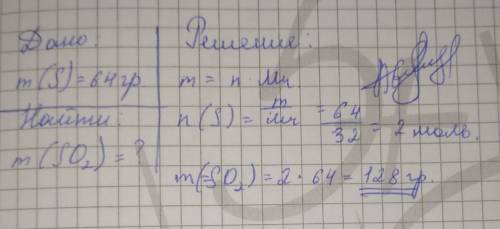 Дано:
m(S) = 64 гр
Найти:
m(SO₂) = ?
Решение:
m = n · Mч
n(S) = m/Mч = 64/32 = 2 моль.
m(SO₂) = 2 · 64 = 128 гр.